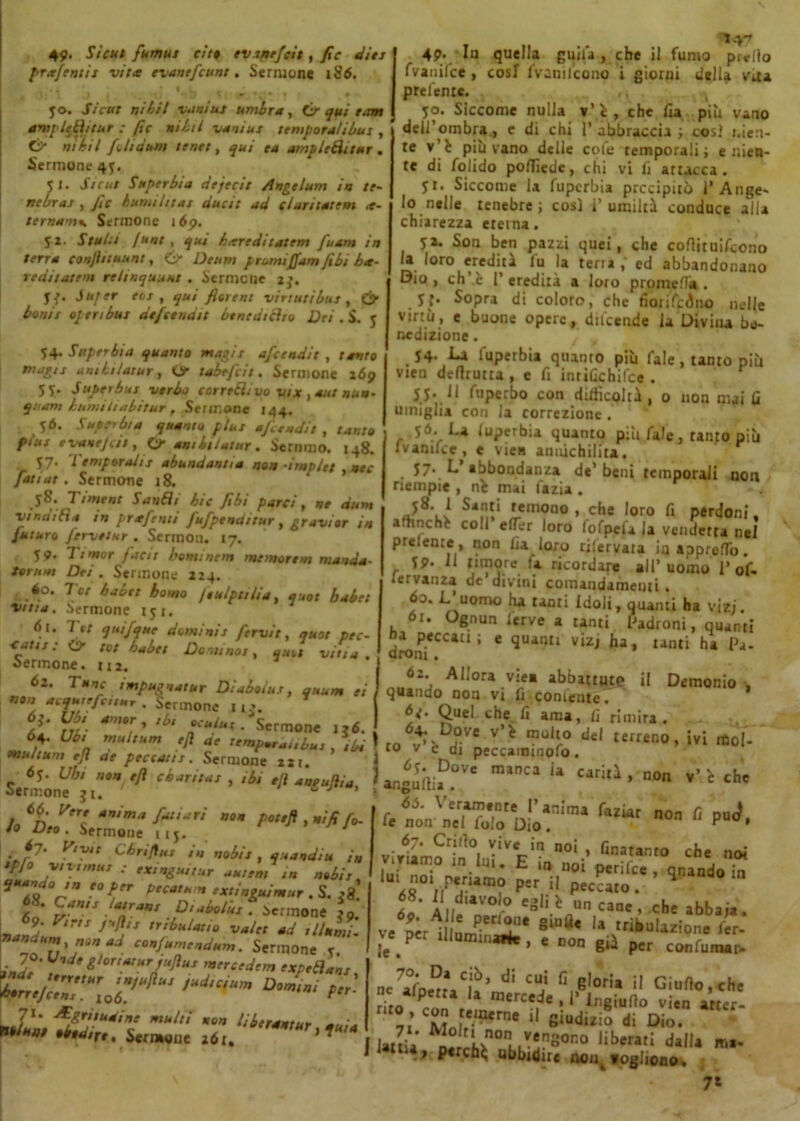 147
49. Sicut fumus cito evanescit, sic dies
præsentis vitæ evanescunt. Sermone 186.
50. Sicut nihil vanius umbra, & qui eam
amplectitur: sic nihil vanius temporalibus,
& nihil solidum tenet, qui ea amplectitur.
Sermone 45.
51. Sicut Superbia dejecit Angelum in te-
nebras, sic humilitas ducit ad claritatem æ-
ternam. Sermone 169.
52. Stulti sunt, qui hæreditatem suam in
terra constituunt, & Deum promissam sibi hæ-
reditatem relinquunt. Sermone 23.
53. Super eos, qui florent virtutibus, &
bonis operibus descendit benedictio Dei. S. 5
54. Superbia quanto magis ascendit, tanto
magis anihilatur, & tabescit. Sermone 269
55. Superbus verbo correctivo vix, aut nun-
quam humiliabitur. Sermone 144.
56. Superbia quanto plus ascendit, tanto
plus evanescit, & anihilatur. Sermno. 148.
57. Temporalis abundantia non implet, nec
satiat. Sermone 18.
58. Timent Sancti hic sibi parci, ne dum
vindicta in præsenti suspenditur, gravior in
futuro servetur. Sermon. 17.
59. Timor facit hominem memorem manda-
torum Dei. Sermone 224.
60. Tot habet homo sculptilia, quot habet
vitia. Sermone 151.
61. Tot quisque dominis servit, quot pec-
catis: & tot habet Dominos, quot vitia.
Sermone. 112.
62. Tunc impugnatur Diabolus, quum ei
non acquiescitur. Sermone 113.
63. Ubi amor, ibi oculus. Sermone 136.
64. Ubi multum est de temporalibus, ibi
multum est de peccatis. Sermone 221.
65. Ubi non est charitas, ibi est angustia,
Sermone 31.
66. Vere anima satiari non potest, nisi so-
lo Deo. Sermone 115.
67. Vivit Christus in nobis, quandiu in
ipso vivimus: exinguitur autem in nobis,
quando in eo per pecatum extinguimur. S. 28.
68. Canis latrans Diabolus. Sermone 39.
69. Viris justis tribulatio valet ad illumi-
nandum, non ad consumendum. Sermone 5.
70. Unde gloriatur justus mercedem expectans,
inde terretur injustus judicium Domini per-
horrescens. 106.
71. Ægritudine multi non liberantur, quia
nolunt obedire. Sermone 261.
49. In quella guisa, che il fumo presto
svanisce, così svaniscono i giorni della vita
presente.
50. Siccome nulla v'è, che sia più vano
dell'ombra, e di chi l'abbraccia; così nien-
te v'è più vano delle cose temporali; e nien-
te di solido possiede, chi vi si attacca.
51. Siccome la superbia precipitò l'Ange-
lo nelle tenebre; così l'umiltà conduce alla
chiarezza eterna.
52. Son ben pazzi quei, che costituiscono
la loro eredità su la terra, ed abbandonano
Dio, ch'è l'eredità a loro promessa.
53. Sopra di coloro, che fioriscóno nelle
virtù, e buone opere, discende la Divina be-
nedizione.
54. La superbia quanto più sale, tanto più
vien destrutta, e si intisichisce.
55. Il superbo con difficoltà, o non mai si
umiglia con la correzione.
56. La superbia quanto più sale, tanto più
svanisce, e vien annichilita.
57. L'abbondanza de' beni temporali non
riempie, nè mai sazia.
58. I Santi temono, che loro si perdoni,
affinchè coll'esser loro sospesa la vendetta nel
presente, non sia loro riservata in appresso.
59. Il timore fa ricordare all'uomo l'os-
servanza de' divini comandamenti.
60. L'uomo ha tanti Idoli, quanti ha vizj.
61. Ognun serve a tanti Padroni, quanti
ha peccati; e quanti vizj ha, tanti ha Pa-
droni.
62. Allora vien abbattuto il Demonio,
quando non vi si consente.
63. Quel che si ama, si rimira.
64. Dove v'è molto del terreno, ivi mol-
to v'è di peccaminoso.
65. Dove manca la carità, non v'è che
angustia.
66. Veramente l'anima saziar non si può,
se non nel solo Dio.
67. Cristo vive in noi, finatanto che noi
viviamo in lui. E in noi perisce, quando in
lui noi periamo per il peccato.
68. Il diavolo egli è un cane, che abbaja.
69. Alle persone giuste la tribulazione ser-
ve per illuminarle, e non già per consumar-
le.
70. Da ciò, di cui si gloria il Giusto, che
ne aspetta la mercede, l'Ingiusto vien atter-
rito, con temerne il giudizio di Dio.
71. Molti non vengono liberati dalla ma-
lattia, perchè ubbidire non vogliono.
72